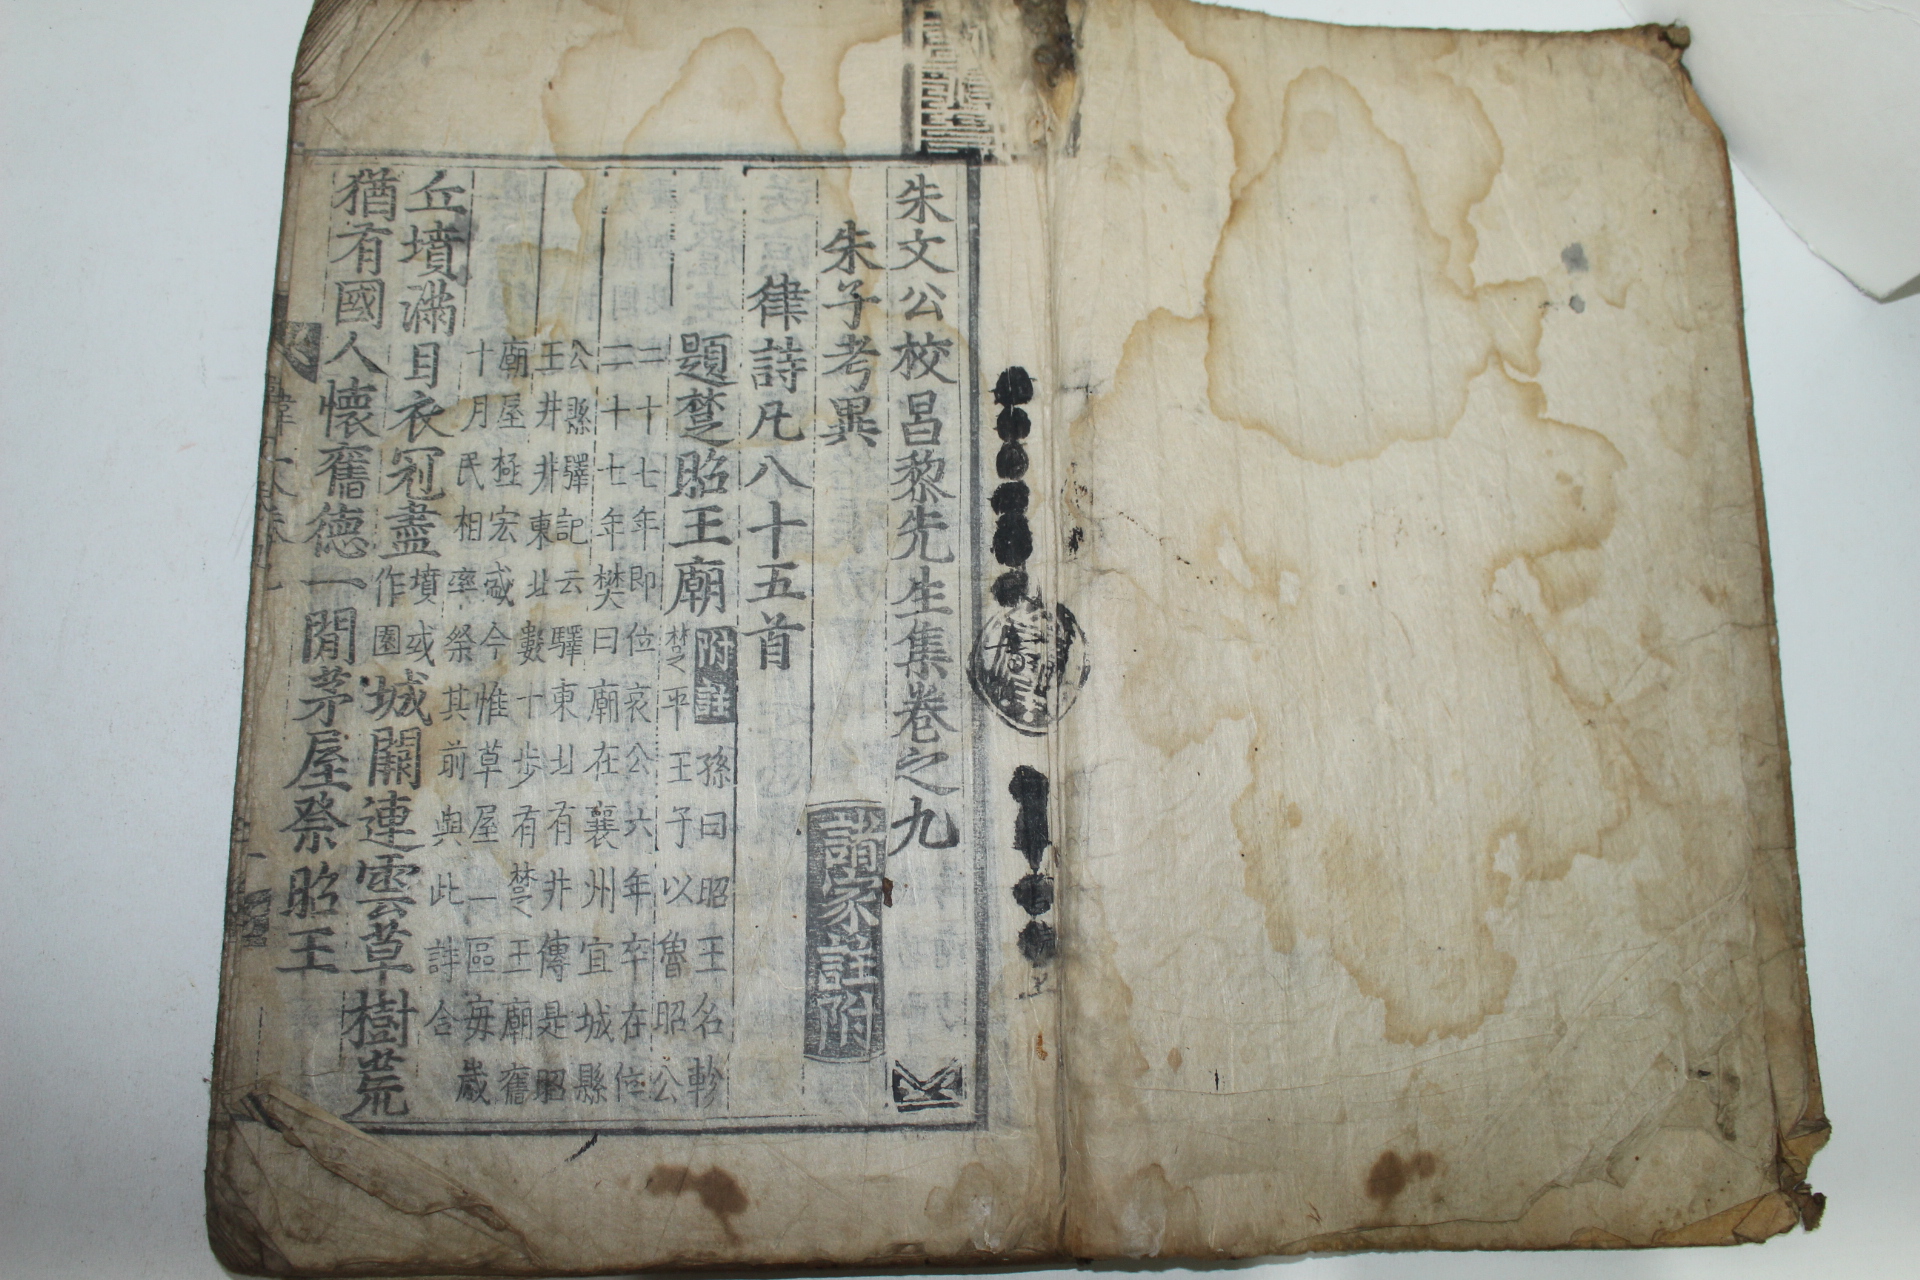 朱文公校昌黎先生集卷之九
朱子考異 諸家註附
律詩凡八十五首
題楚昭王廟 附註 孫曰昭王名軫
楚平王子以魯昭公
二十七年即位哀公六年卒在位
二十七年樊曰廟在襄州宜城縣
公縣驛記云驛東北有井傳是昭
王井井東北數十步有楚王廟舊
廟屋極宏盛今惟草屋一區每歲
十月民相率祭其前與此詩合
丘墳滿目衣冠盡 墳或作園 城闕連雲草樹荒
猶有國人懷舊德一間茅屋祭昭王